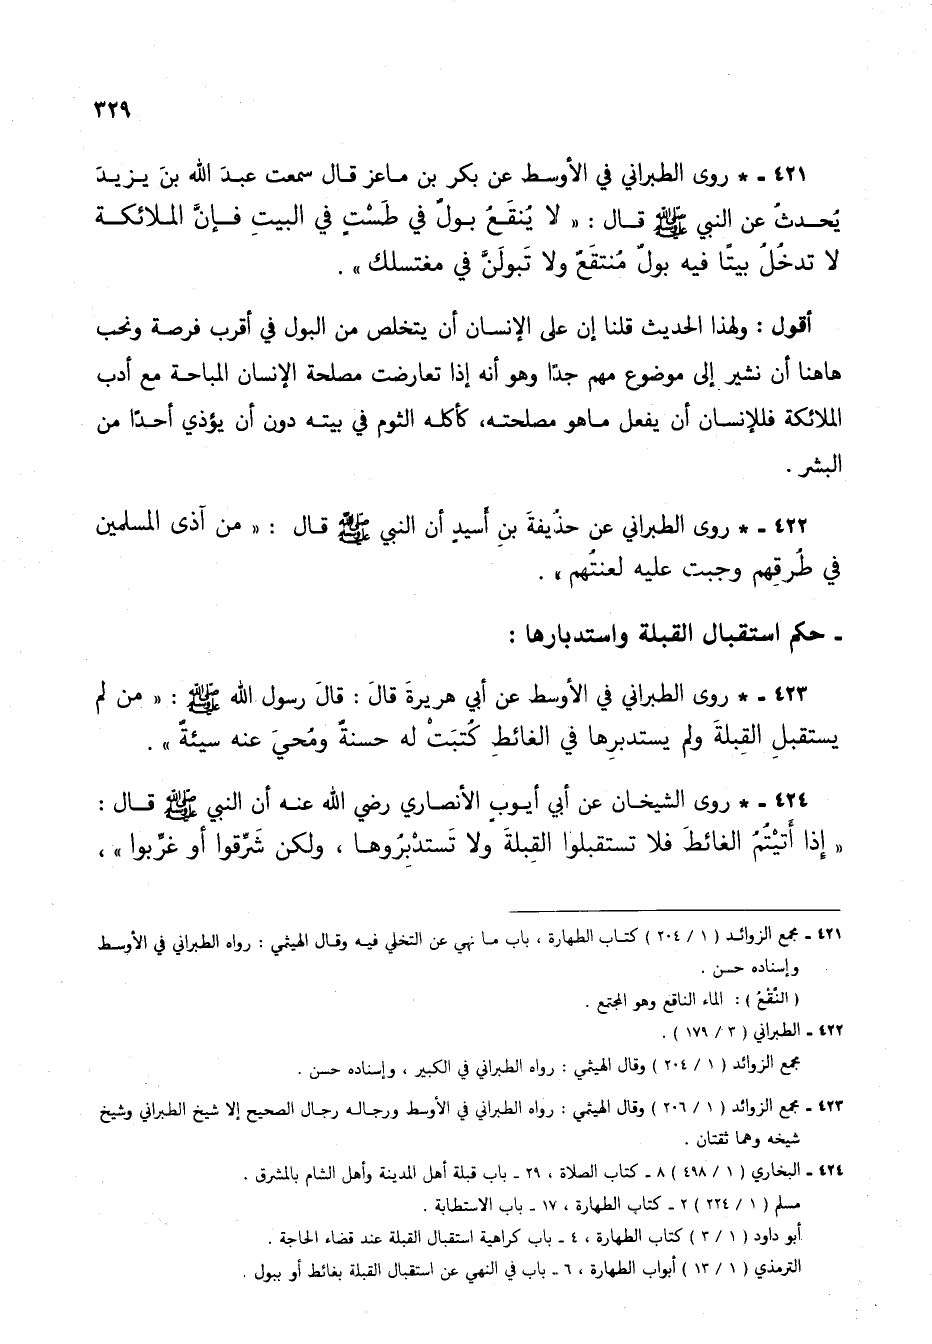 ٣٢٩
٤٢١ ـ * روى الطبراني في الأوسط عن بكر بن ماعز قال سمعت عبدَ الله بنَ يزيدَ
يُحدثُ عن النبي ﷺ قال : « لا يُنقَعُ بولٌ في طَسْتٍ في البيتِ فإنَّ الملائكة
لا تدخُلُ بيتًا فيه بولٌ مُنتقَعٌ ولا تَبولَنَّ في مغتسلك » .
أقول : ولهذا الحديث قلنا إن على الإنسان أن يتخلص من البول في أقرب فرصة ونحب
هاهنا أن نشير إلى موضوع مهم جدًا وهو أنه إذا تعارضت مصلحة الإنسان المباحة مع أدب
الملائكة فللإنسان أن يفعل ماهو مصلحته، كأكله الثوم في بيته دون أن يؤذي أحدًا من
البشر .
٤٢٢ ـ * روى الطبراني عن حذيفةَ بنِ أَسيدٍ أن النبي ﷺ قال : « من آذى المسلمين
في طُرقِهم وجبت عليه لعنتُهم » .
ـ حكم استقبال القبلة واستدبارها :
٤٢٣ ـ * روى الطبراني في الأوسط عن أبي هريرةَ قالَ : قالَ رسول الله ﷺ : « من لم
يستقبلِ القِبلةَ ولم يستدبرِها في الغائطِ كُتبَتْ له حسنةٌ ومُحيَ عنه سيئةٌ » .
٤٢٤ ـ * روى الشيخان عن أبي أيوبٍ الأنصاري رضي الله عنه أن النبي ﷺ قال :
« إذا أَتيْتُمُ الغائطَ فلا تستقبلوا القِبلةَ ولا تَستدْبِرُوها ، ولكن شَرِّقوا أو غرِّبوا » ،
٤٢١ ـ مجمع الزوائد ( ١ / ٢٠٤ ) كتاب الطهارة ، باب ما نهي عن التخلي فيه وقال الهيثمي : رواه الطبراني في الأوسط
وإسناده حسن .
( النَّقْعُ ) : الماء الناقع وهو المجتمع .
٤٢٢ ـ الطبراني ( ٣ / ١٧٩ ) .
مجمع الزوائد ( ١ / ٢٠٤ ) وقال الهيثمي : رواه الطبراني في الكبير ، وإسناده حسن .
٤٢٣ ـ مجمع الزوائد ( ١ / ٢٠٦ ) وقال الهيثمي : رواه الطبراني في الأوسط ورجاله رجال الصحيح إلا شيخ الطبراني وشيخ
شيخه وهما ثقتان .
٤٢٤ ـ البخاري ( ١ / ٤٩٨ ) ٨ ـ كتاب الصلاة ، ٢٩ ـ باب قبلة أهل المدينة وأهل الشام بالمشرق .
مسلم ( ١ / ٢٢٤ ) ٢ ـ كتاب الطهارة ، ١٧ ـ باب الاستطابة .
أبو داود ( ١ / ٣ ) كتاب الطهارة ، ٤ ـ باب كراهية استقبال القبلة عند قضاء الحاجة .
الترمذي ( ١ / ١٣ ) أبواب الطهارة ، ٦ ـ باب في النهي عن استقبال القبلة بغائط أو ببول .